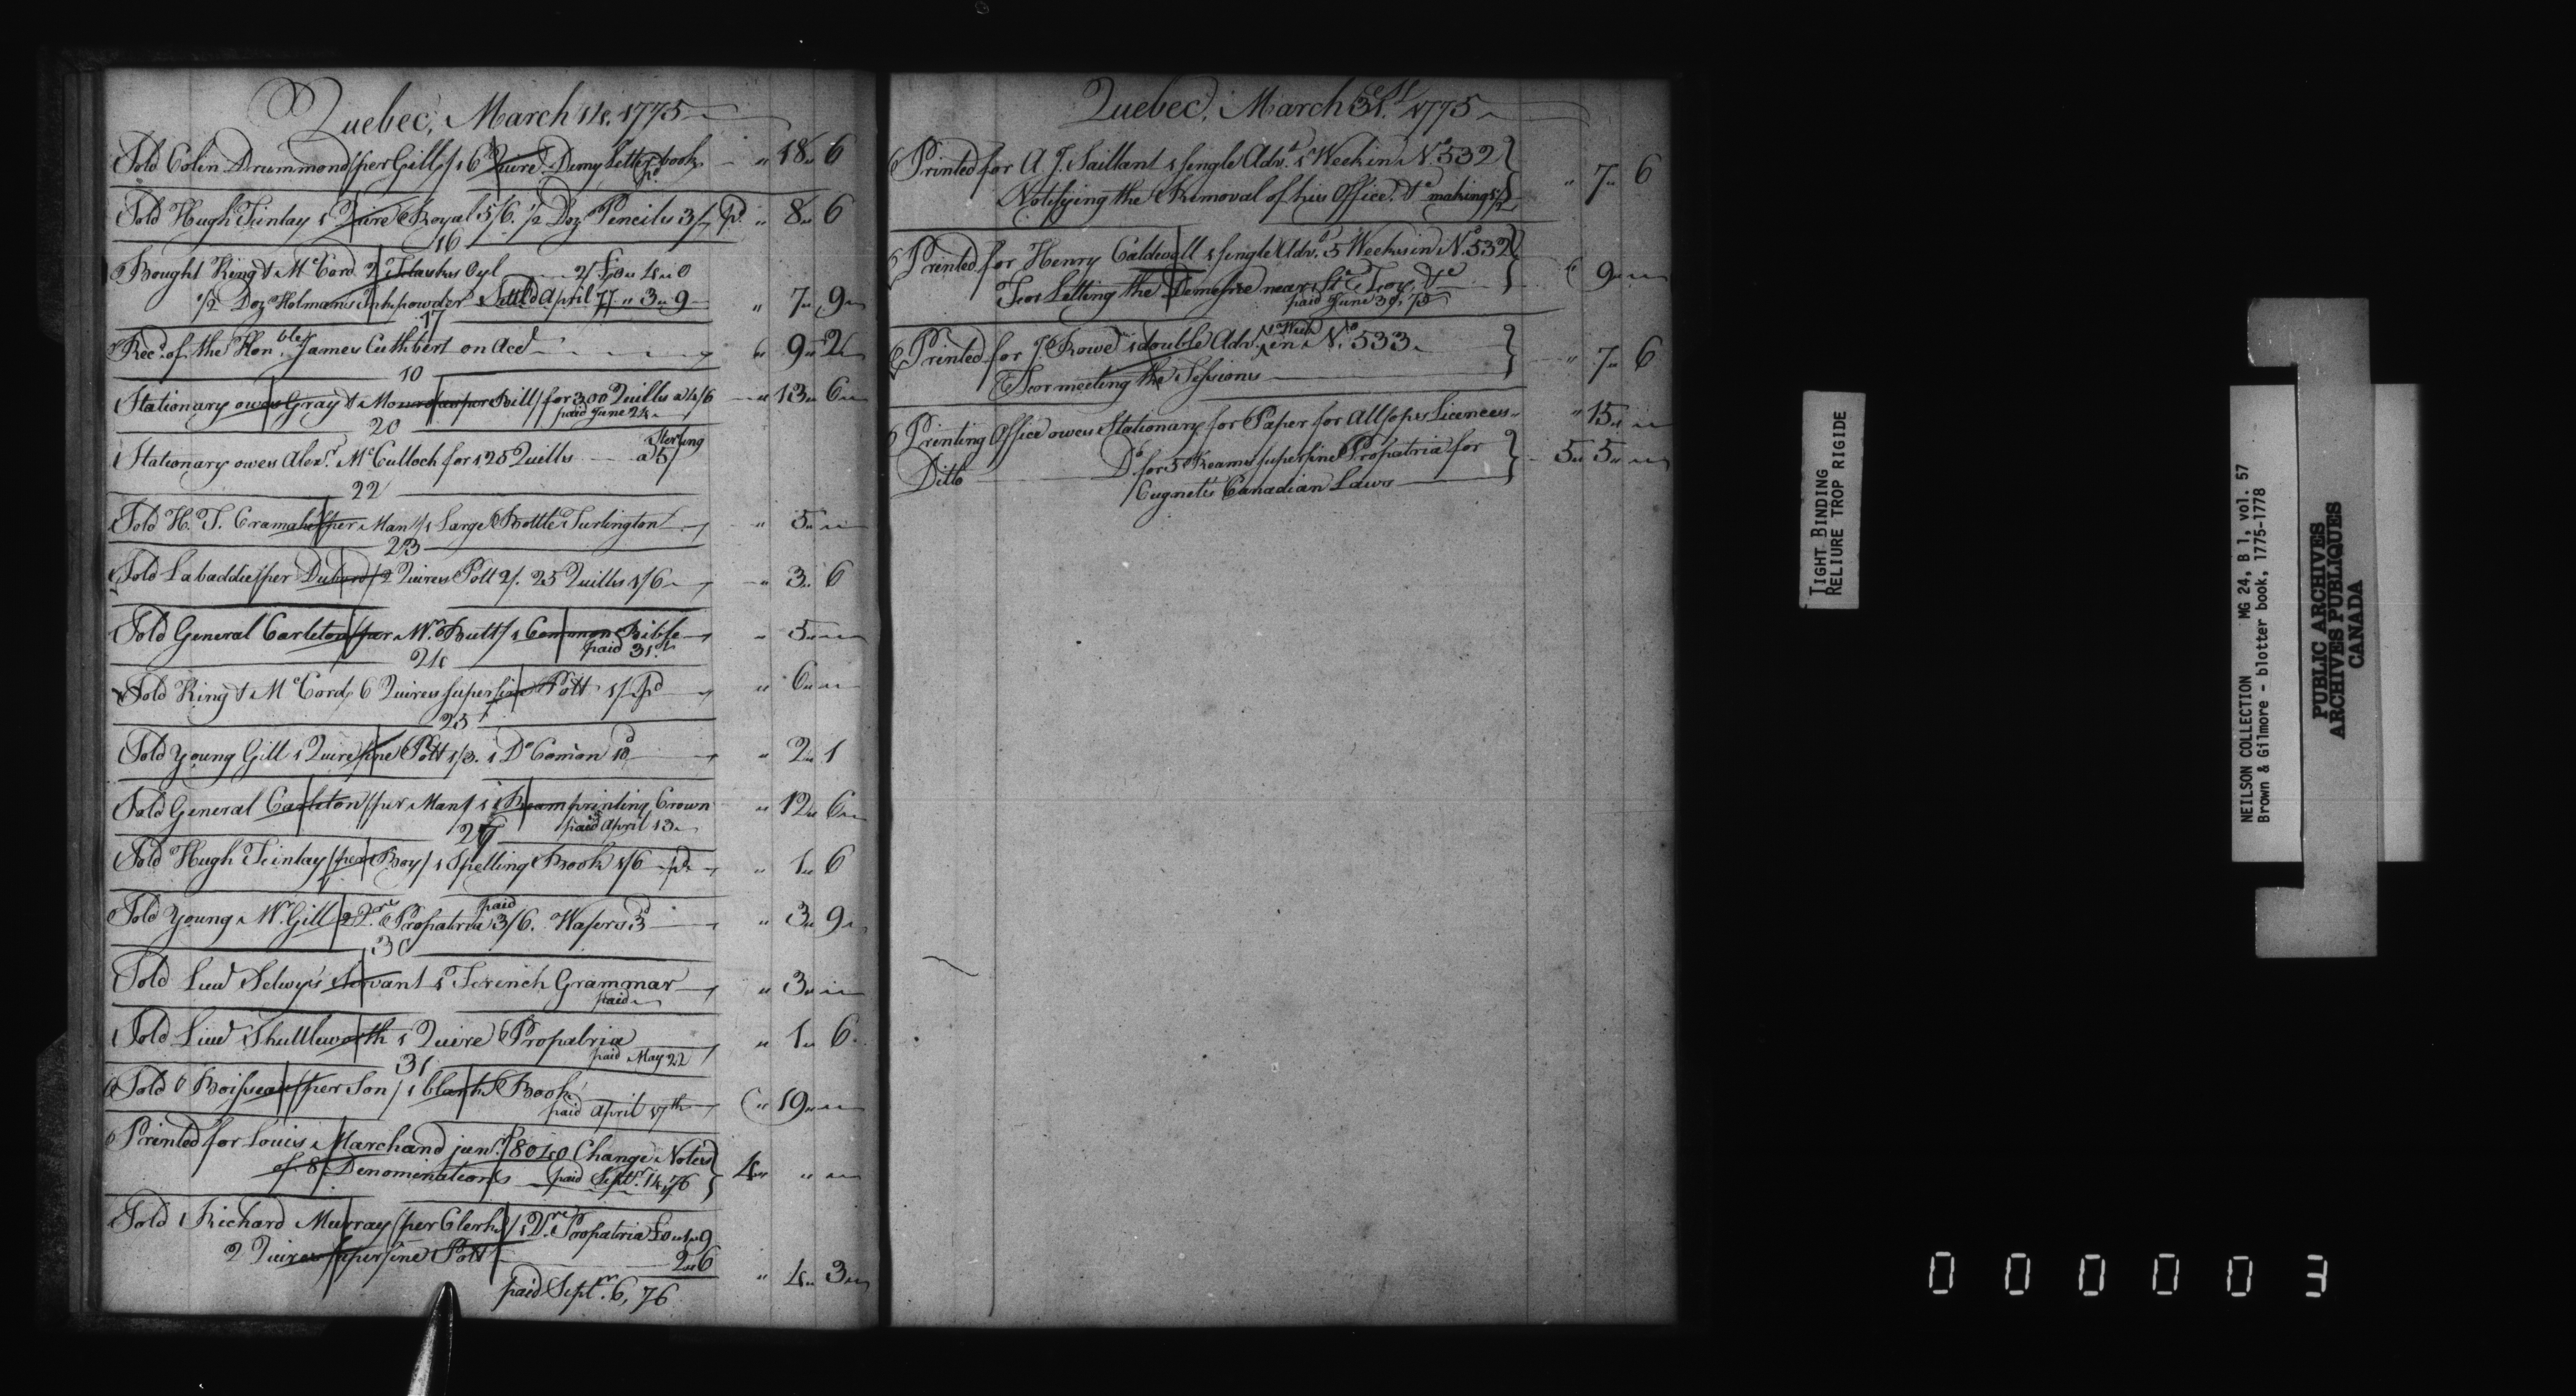 Quebec, March 14. 1775
Sold Colin Drummond /per Gill/ 1 6 Quire Demy Letter book pd „ 18 „ 6
Sold Hugh Finlay 1 Quire Royal 5/6. 1/2 Doz Pencils 3/ pd „ 8 „ 6
16
Bought King & McCord 2 Flasks Oyl 2/ £0 „ 4 „ 0
1/2 Doz Holman's Inkpowder Settled April 77 „ 3 „ 9 „ 7 „ 9
17
Recd. of the Honble. James Cuthbert on Acct „ 9 „ 2
10
Stationary owes Gray & Munro /as per Bill/ for 300 Quills a 4/6 „ 13 „ 6
paid June 24
20
Stationary owes Alexr. McCulloch for 125 Quills a 5/ Sterling
22
Sold H. T. Cramahe /per Man/ 1 Large Bottle Turlington „ 5 „
23
Sold Labaddie /per Dubord/ 2 Quires Pott 2/. 25 Quills 1/6 „ 3 „ 6
Sold General Carleton /per Mr. Butt/ 1 Common Bible „ 5 „
paid 31st
24
Sold King & McCord, 6 Quires superfine Pott 1/ Pd „ 6 „
25
Sold Young Gill 1 Quire fine Pott 1/3. 1 Do Comon 10d „ 2 „ 1
Sold General Carleton /per Man/ 1 Ream printing Crown „ 12 „ 6
paid April 13
27
Sold Hugh Finlay /per Boy/ 1 Spelling Book 1/6 pd „ 1 „ 6
Sold Young Mr. Gill 2 Qre Propatria 3/6. Wafers 3d „ 3 „ 9
paid
30
Sold Lieut Selwyn's Servant 1 French Grammar „ 3 „
paid
Sold Lieut Shuttleworth 1 Quire Propatria „ 1 „ 6
paid May 22
31
Sold Boisseau /per Son/ 1 blank Book „ 19 „
paid April 17th
Printed for Louis Marchand junr. 8040 Change Notes
of 8 Denominations paid Septr. 14, 76 4 „ „
Sold Richard Murray /per Clerk/ 1 Qre. Propatria £0 „ 1 „ 9
2 Quires superfine Pott 2 „ 6
„ 4 „ 3
paid Septr. 6, 76
Quebec, March 31st. 1775
Printed for A J. Saillant 1 single Advt. 1 Week in No. 532
Notifying the Removal of his Office, &c making „ 7 „ 6
Printed for Henry Caldwell 1 single Advt. 5 Weeks in No. 532
For Letting the Demesne near St Foy, &c „ 9 „
paid June 30, 75
Printed for J. Rowe 1 double Advt. 1 Week in No. 533
For meeting the Sessions „ 7 „ 6
Printing Office owes Stationary for Paper for Allsopes Licences „ 15 „
Ditto Do. for 5 Reams superfine Propatria for 5 „ 5 „
Cugnet's Canadian Laws
TIGHT BINDING
RELIURE TROP RIGIDE
NEILSON COLLECTION MG 24, B 1, vol. 57
Brown & Gilmore - blotter book, 1775-1778
PUBLIC ARCHIVES
ARCHIVES PUBLIQUES
CANADA
000003